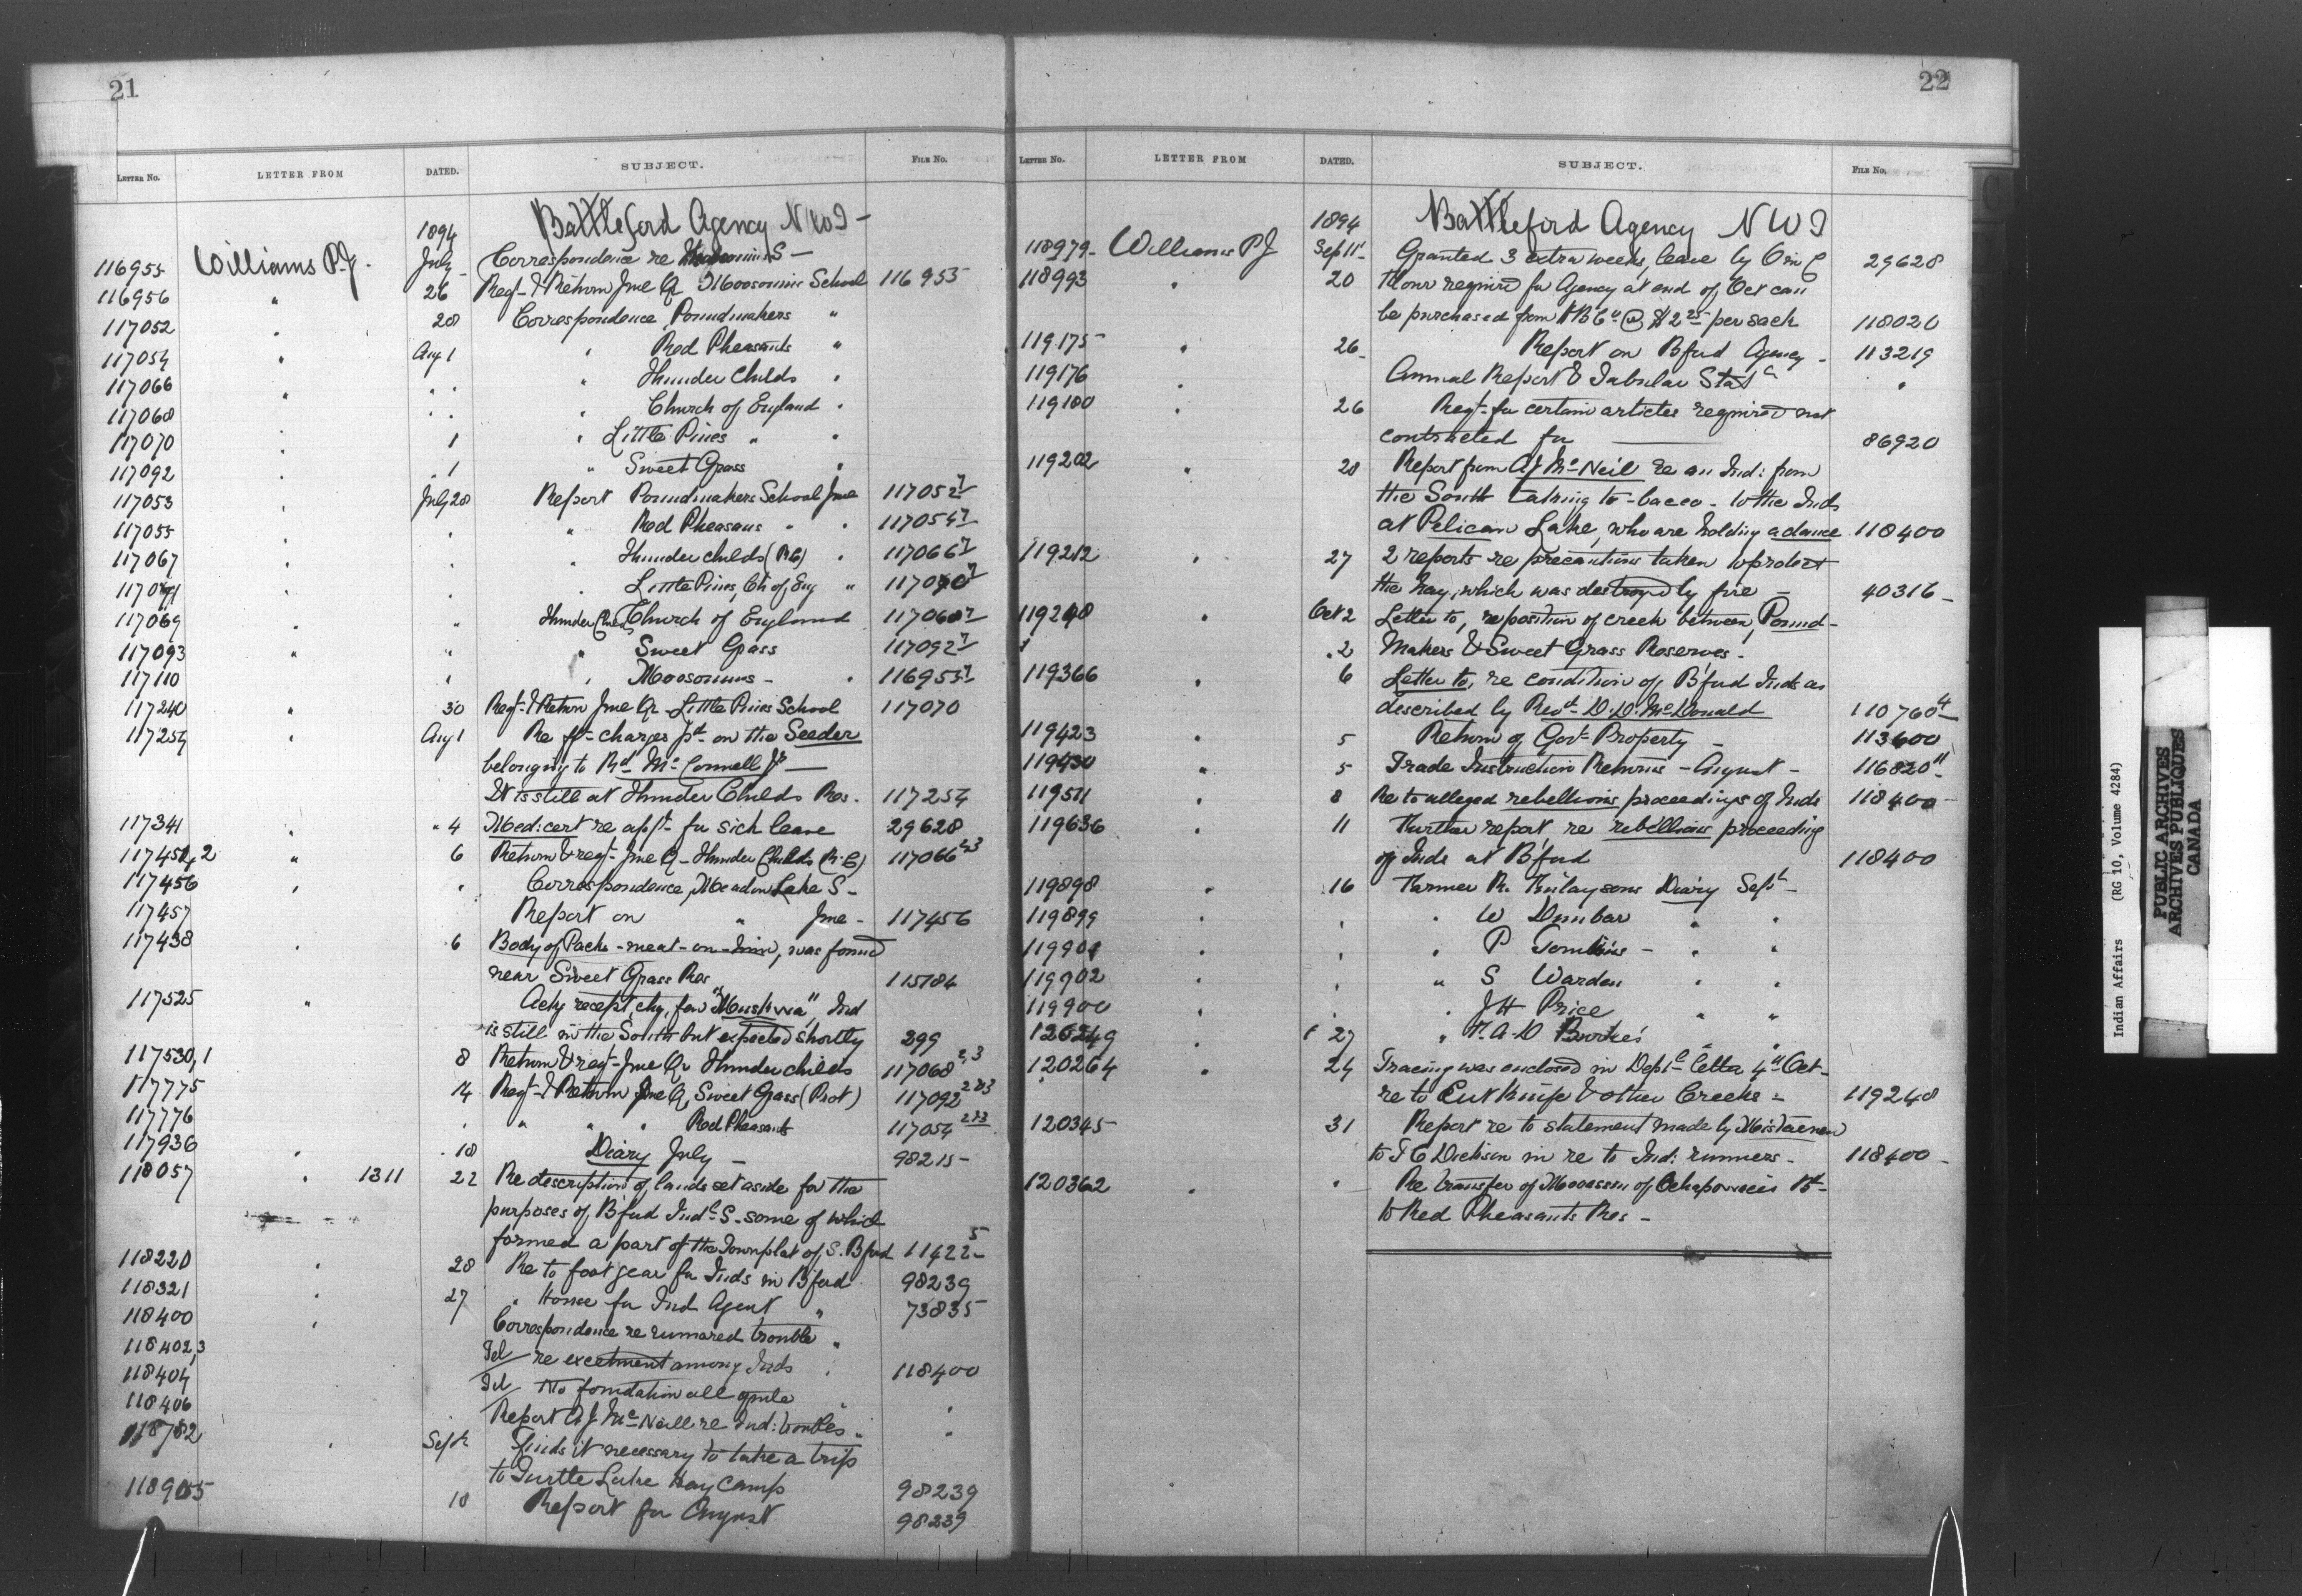 21
LETTER NO. LETTER FROM DATED. SUBJECT. FILE NO.
1894 Battleford Agency N W T -
116955 Williams P.J. July Correspondence re Moosomins S -
116956 " 26 Reqt & Return Jne Qr Moosomin School 116955
117052 " 28 Correspondence, Poundmakers "
117054 " Aug 1 " Red Pheasants "
117066 " " " " Thunder Childs "
117068 " " " Church of England "
117070 " 1 " Little Pines " "
117092 " 1 " Sweet Grass "
117053 " July 28 Report Poundmakers School Jne 117052
117055 " " " Red Pheasans " " 117054
117067 " " " Thunder childs (RC) " 117066
117071 " " " Little Pines, Ch of Eng " 117070
117069 " " Thunder Childs Church of England 117068
117093 " " " Sweet Grass 117092
117110 " " " Moosomins - " 116955
117240 " 30 Reqt & Return Jne Qr Little Pines School 117070
117254 " Aug 1 Re frt charges pd on the Seeder
belonging to Rd McConnell Jr -
It is still at Thunder Childs Res. 117254
117341 " " 4 Med: cert re appt for sick leave 29628
117451,2 " 6 Return & reqt Jne Q - Thunder Childs (R.C) 117066 2,3
117456 " " Correspondence, Meadow Lake S -
117457 Report on " Jne - 117456
117438 " 6 Body of Pack-meat-on-him, was found
near Sweet Grass Res 115184
117525 " Ackg receipt chq. for "Muskwa", Ind
is still in the South but expected shortly 299
117530,1 8 Return & reqt Jne Qr Thunder childs 117068 2,3
117775 14 Reqt & Return Jne Q, Sweet Grass (Prot) 117092 2&3
117776 " " " " Red Pheasants 117054 2&3
117936 " 18 Diary July - 98215 -
118057 " 1311 22 Re description of lands set aside for the
purposes of B'ford Indl S. some of which
formed a part of the Townplat of S. B'ford 11422 5
118220 " 28 Re to foot gear for Inds in B'ford 98239
118321 " 27 " House for Ind Agent " 73835
118400 " Correspondence re rumored trouble "
118402,3 Tel re excitment among Inds " 118400
118404 Tel No foundation all quiet "
118406 " Report A J McNeill re Ind: troubles " "
118782 " Sept Finds it necessary to take a trip
to Turtle Lake Hay Camp 98239
118905 10 Report for August 98239
22
LETTER NO. LETTER FROM DATED. SUBJECT. FILE NO.
1894 Battleford Agency N W T
118979 - Williams P J Sep 11 - Granted 3 extra weeks, leave by O in C 29628
118993 " 20 Flour required for Agency at end of Oct can
be purchased from HBCo @ $2 25 per sack 118020
119175 " 26 - Report on B'ford Agency - 113219
119176 " Annual Report & Tabular Stat "
119180 " 26 Reqt for certain articles required not
contracted for 86920
119202 " 28 Report from A J McNeill re an Ind: from
the South taking to-bacco - to the Inds
at Pelican Lake, who are holding a dance 118400
119212 " 27 2 reports re precautions taken to protect
the hay, which was destroyed by fire - 40316 -
119248 " Oct 2 Letter to, re position of creek between Pound-
" 2 Makers & Sweet Grass Reserves -
119366 " 6 Letter to, re condition of B'ford Inds as
described by Revd D.D. McDonald 110760 4
119423 " 5 Return of Govt Property - 113600
119430 " 5 Trade Instruction Returns - August - 116820 11
119511 8 Re to alleged rebellious proceedings of Inds 118400 -
119636 11 Further report re rebellious proceeding
of Inds at B'ford 118400
119898 " 16 Farmer R. Finlaysons Diary Sept -
119899 " " " W Dunbar " "
119901 " " " P Tomkins - " "
119902 " " " S Warden " "
119900 " " " J H Price " "
120249 " " 27 " F. A. D Bourke's "
120264 " 24 Tracing was enclosed in Deptl letter 4th Oct -
re to Cut Knife & other Creeks - 119248
120345 - 31 Report re to statement made by
to T C Dickson in re to Ind: runners - 118400 -
120362 " " Re transfer of of Bd -
to Red Pheasants Res -
Indian Affairs (RG 10, Volume 4284)
PUBLIC ARCHIVES
ARCHIVES PUBLIQUES
CANADA